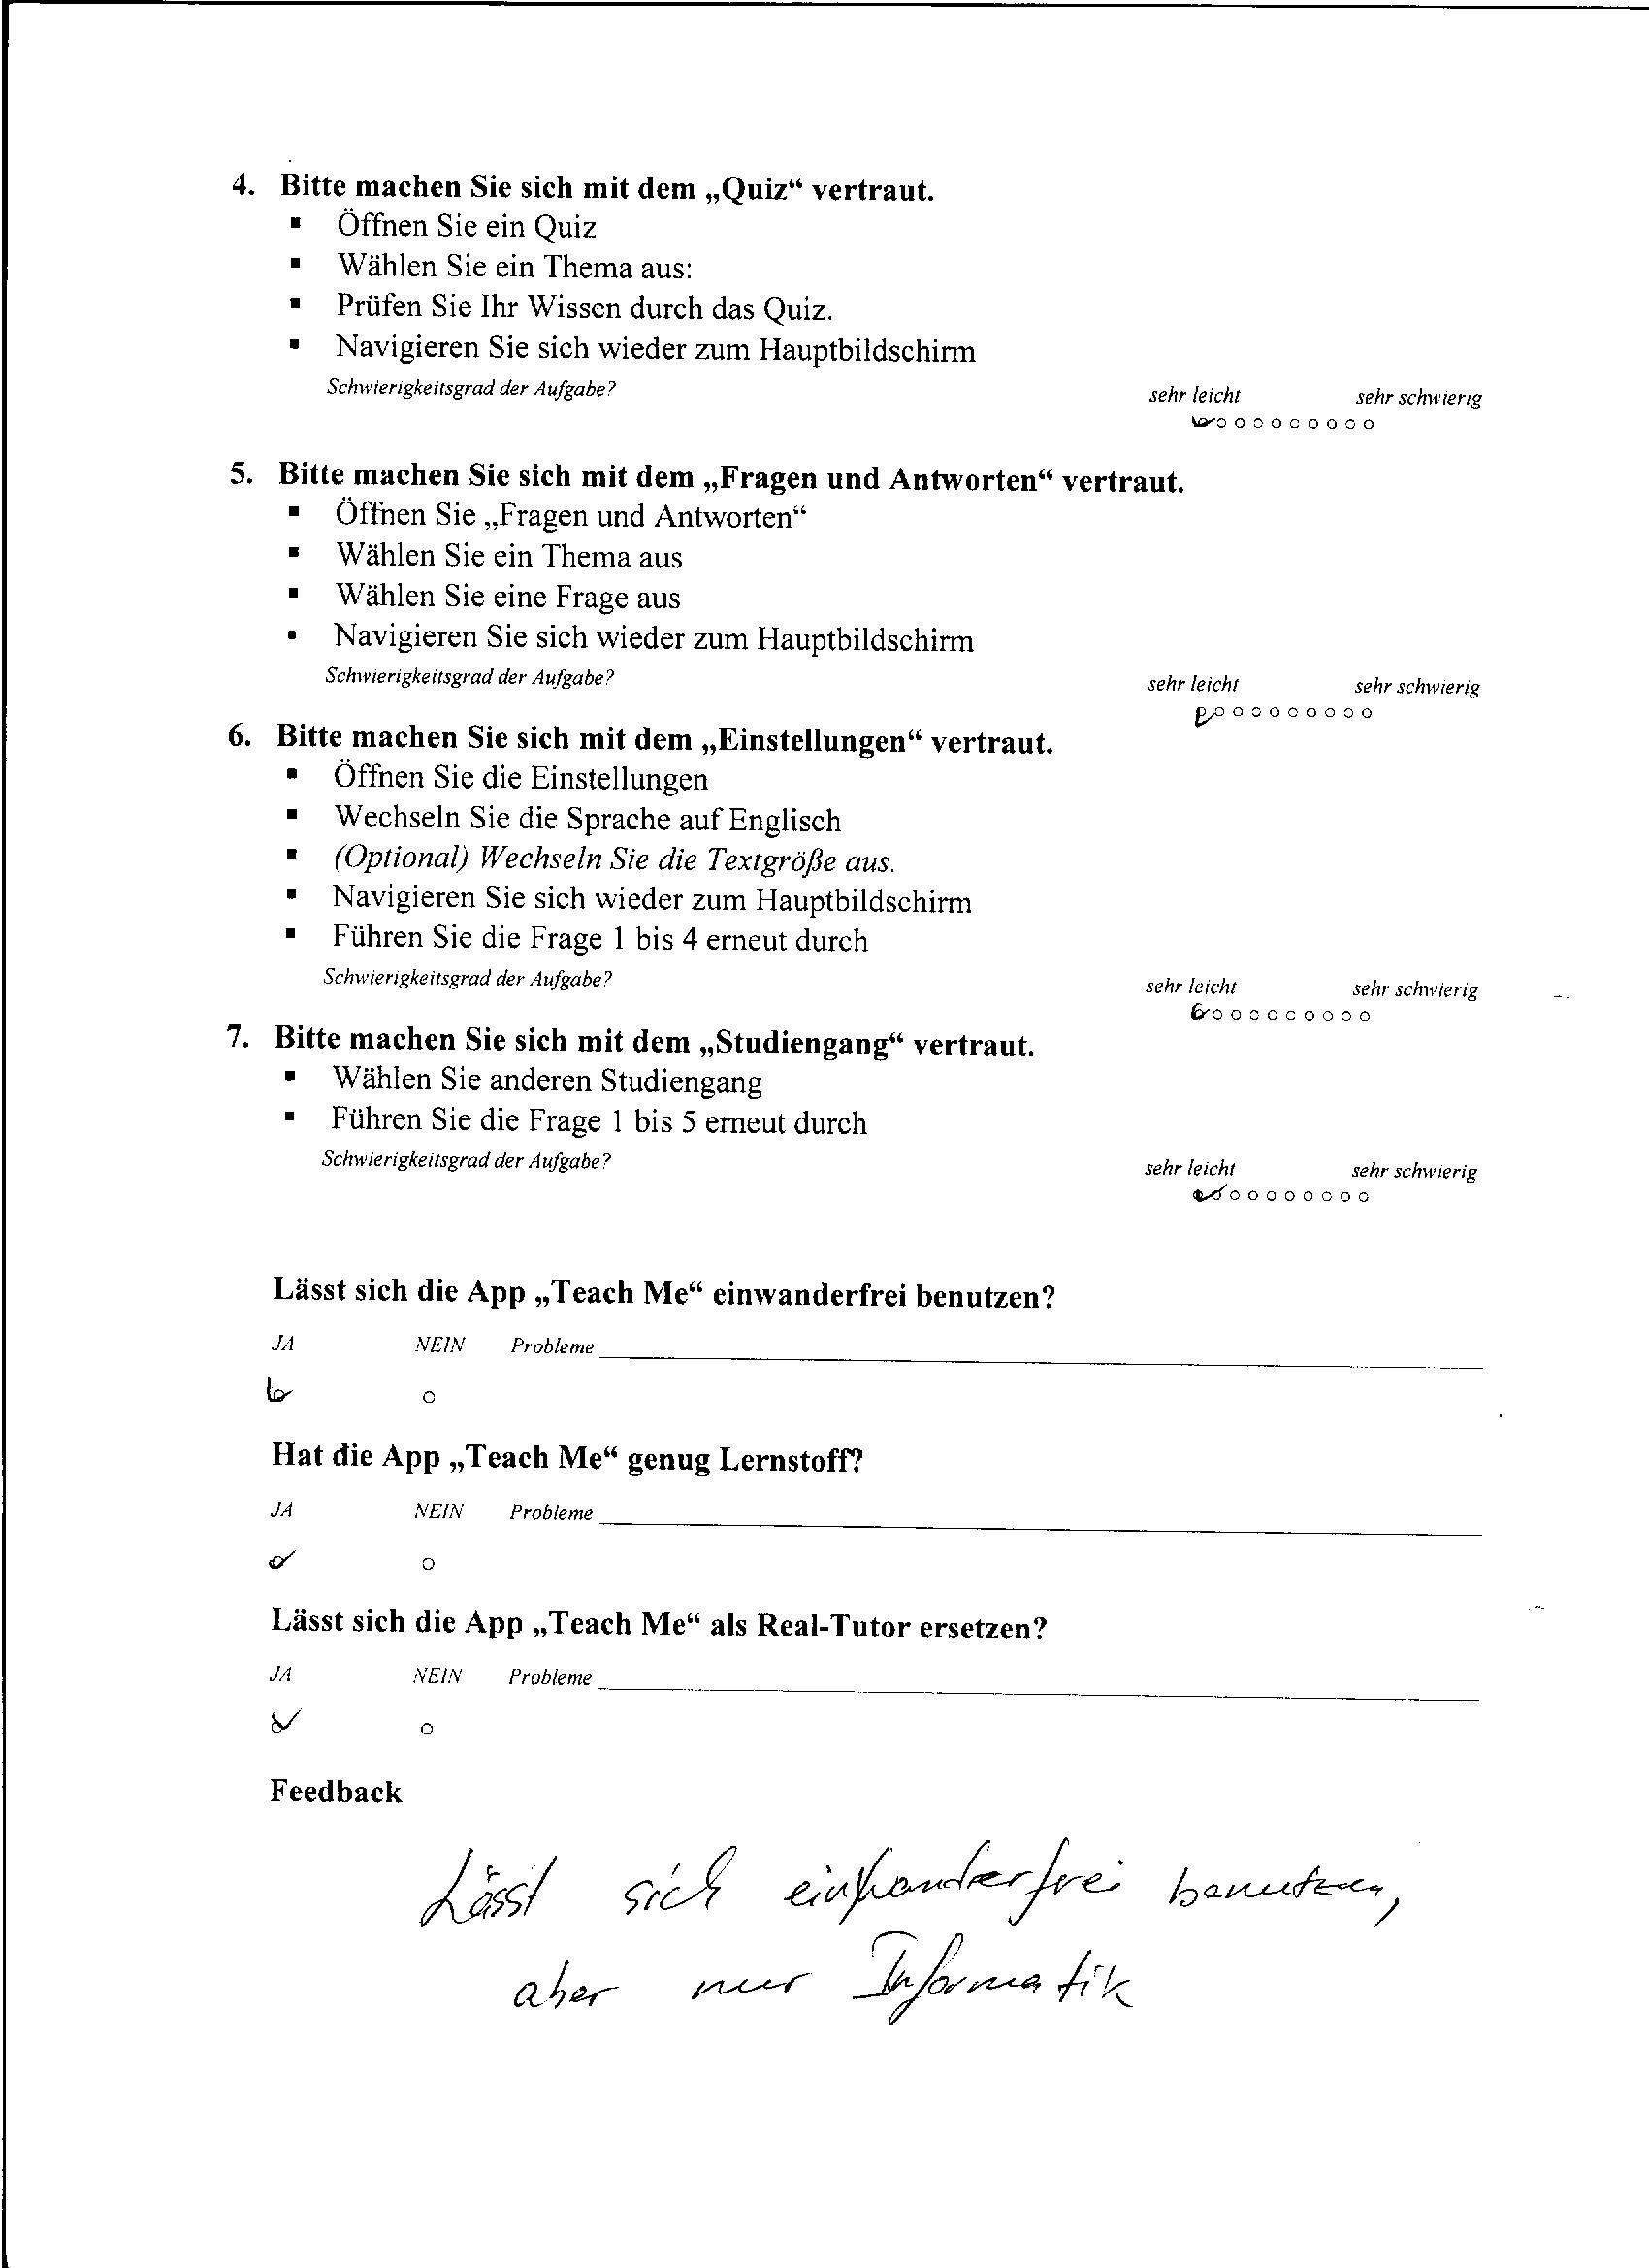 4. Bitte machen Sie sich mit dem „Quiz“ vertraut.
▪ Öffnen Sie ein Quiz
▪ Wählen Sie ein Thema aus:
▪ Prüfen Sie Ihr Wissen durch das Quiz.
▪ Navigieren Sie sich wieder zum Hauptbildschirm
Schwierigkeitsgrad der Aufgabe? sehr leicht sehr schwierig
5. Bitte machen Sie sich mit dem „Fragen und Antworten“ vertraut.
▪ Öffnen Sie „Fragen und Antworten“
▪ Wählen Sie ein Thema aus
▪ Wählen Sie eine Frage aus
▪ Navigieren Sie sich wieder zum Hauptbildschirm
Schwierigkeitsgrad der Aufgabe? sehr leicht sehr schwierig
6. Bitte machen Sie sich mit dem „Einstellungen“ vertraut.
▪ Öffnen Sie die Einstellungen
▪ Wechseln Sie die Sprache auf Englisch
▪ (Optional) Wechseln Sie die Textgröße aus.
▪ Navigieren Sie sich wieder zum Hauptbildschirm
▪ Führen Sie die Frage 1 bis 4 erneut durch
Schwierigkeitsgrad der Aufgabe? sehr leicht sehr schwierig
7. Bitte machen Sie sich mit dem „Studiengang“ vertraut.
▪ Wählen Sie anderen Studiengang
▪ Führen Sie die Frage 1 bis 5 erneut durch
Schwierigkeitsgrad der Aufgabe? sehr leicht sehr schwierig
Lässt sich die App „Teach Me“ einwanderfrei benutzen?
JA NEIN Probleme
Hat die App „Teach Me“ genug Lernstoff?
JA NEIN Probleme
Lässt sich die App „Teach Me“ als Real-Tutor ersetzen?
JA NEIN Probleme
Feedback
Lässt sich benutzen,
aber nur Informatik